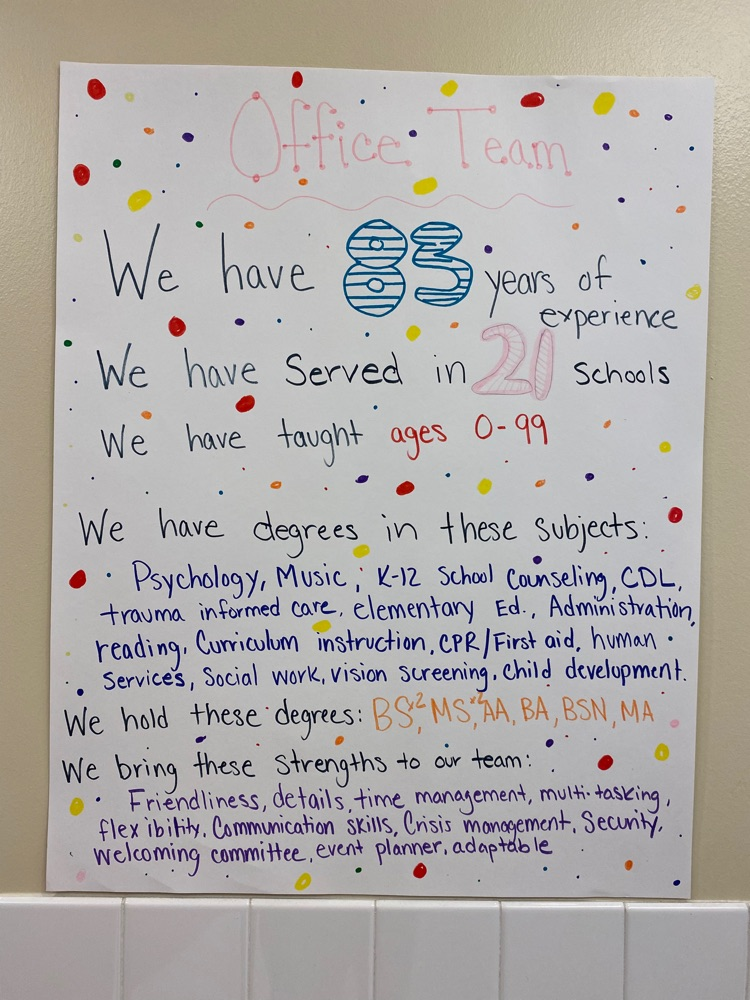 Office Team
We have 83 years of
experience
We have Served in 21 Schools
We have taught ages 0-99
We have degrees in these subjects:
Psychology, Music, K-12 School Counseling, CDL,
trauma informed care, elementary Ed., Administration,
reading, Curriculum instruction, CPR/First aid, human
Services, Social work, vision screening, child development.
We hold these degrees: BSx2, MSx2, AA, BA, BSN, MA
We bring these strengths to our team:
Friendliness, details, time management, multi-tasking,
flexibility, Communication skills, Crisis management, Security,
welcoming committee, event planner, adaptable